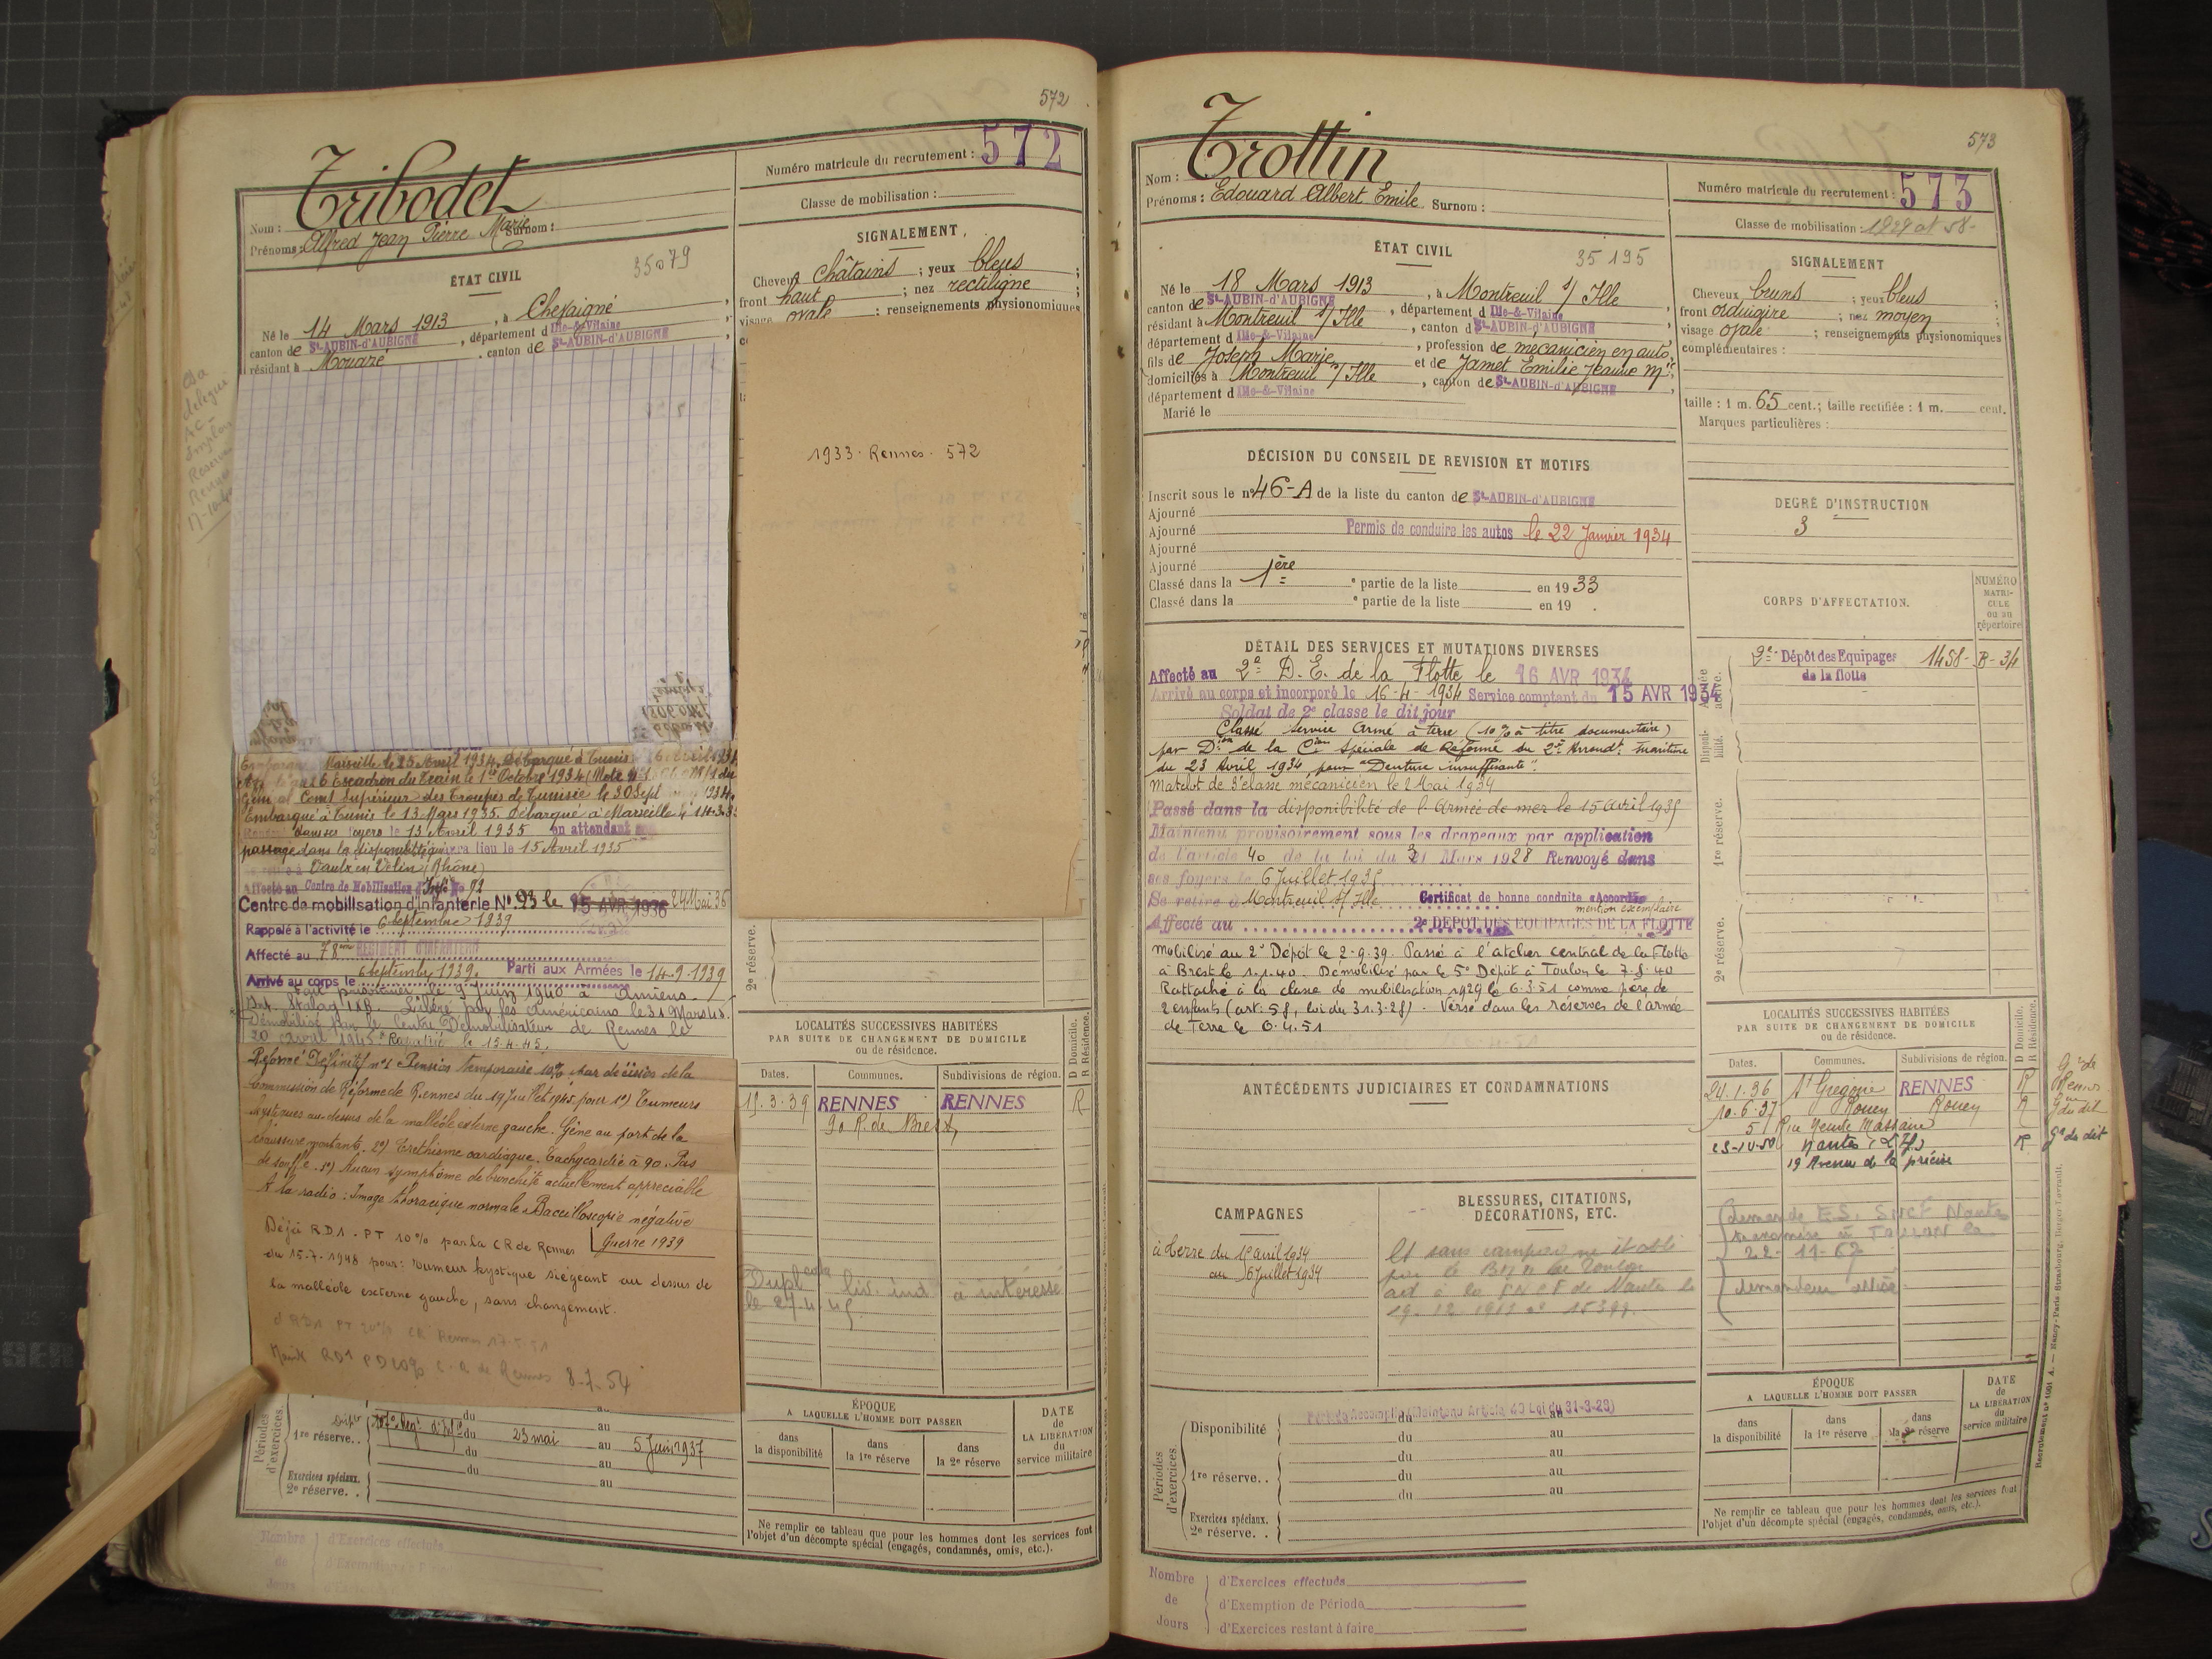 572
Tribodet
Nom :
Prénoms : Alfred Jean Pierre Marie Surnom :
Numéro matricule du recrutement : 572
Classe de mobilisation :
ÉTAT CIVIL
35079
Né le 14 Mars 1913, à Chevaigné
canton de St-AUBIN-d'AUBIGNÉ, département d Ille-&-Vilaine
résidant à Mouazé, canton de St-AUBIN-d'AUBIGNÉ
SIGNALEMENT
Cheveux châtains ; yeux bleus ;
front haut ; nez rectiligne ;
visage ovale ; renseignements physionomiques
1933. Rennes. 572
Marseille le 25 Avril 1934, débarqué à Tunis
26 Escadron du Train le 1er Octobre 1934
Comt Supérieur des Troupes de Tunisie le 30 Sept 1934
Embarqué à Tunis le 13 Mars 1935. Débarqué à Marseille
dans ses foyers le 13 Avril 1935 en attendant son
passage dans la disponibilité qui aura lieu le 15 Avril 1935
Vaulx en Velin (Rhône)
Affecté au Centre de Mobilisation d'Infie No 92
Centre de mobilisation d'infanterie N° 93 le 15 AVR 1936 24 Mai 36
Rappelé à l'activité le 6 Septembre 1939
Affecté au 78ème REGIMENT D'INFANTERIE
Arrivé au corps le 6 Septembre 1939. Parti aux Armées le 14.9.1939
Fait prisonnier le 9 Juin 1940 à Amiens
Stalag IXB. Libéré par les Américains le 31 Mars 45.
Démobilisé par le Centre Démobilisateur de Rennes le
20 Avril 1945. Rapatrié le 13.4.45.
Réformé Définitif n°1 Pension temporaire 10% par décision de la
Commission de Réforme de Rennes du 19 Juillet 1945 pour 1°) Tumeurs
kystiques au-dessus de la malléole externe gauche. Gêne au port de la
chaussure montante. 2°) Eréthisme cardiaque. Tachycardie à 90. Pas
de souffle. 3°) Aucun symptôme de bronchite actuellement appréciable
A la radio : Image thoracique normale. Bacilloscopie négative
Guerre 1939
Déjà RD1. PT 10% par la CR de Rennes
du 15-7-1948 pour : Tumeur kystique siégeant au dessus de
la malléole externe gauche, sans changement.
RD1 PT 20% CR Rennes 17-5-51
RD1 PD 20% C.R de Rennes 8-7-54
2e réserve.
LOCALITÉS SUCCESSIVES HABITÉES
PAR SUITE DE CHANGEMENT DE DOMICILE
ou de résidence.
D Domicile.
R Résidence.
Dates. Communes. Subdivisions de région.
19.3.39 RENNES RENNES R
90 R. de Brest
liv. ind à intéressé
Périodes d'exercices.
1re réserve.. du 23 mai au 5 Juin 1937
du au
du au
Exercices spéciaux.
2e réserve..
ÉPOQUE
A LAQUELLE L'HOMME DOIT PASSER
dans la disponibilité
dans la 1re réserve
dans la 2e réserve
DATE de LA LIBÉRATION du service militaire
Ne remplir ce tableau que pour les hommes dont les services font
l'objet d'un décompte spécial (engagés, condamnés, omis, etc.).
Nombre de Jours
d'Exercices effectués
573
Trottin
Nom :
Prénoms : Edouard Albert Emile Surnom :
Numéro matricule du recrutement : 573
Classe de mobilisation : 1929 art 58
ÉTAT CIVIL
35195
Né le 18 Mars 1913, à Montreuil s/ Ille
canton de St-AUBIN-d'AUBIGNÉ, département d Ille-&-Vilaine
résidant à Montreuil s/ Ille, canton d St-AUBIN-d'AUBIGNÉ
département d Ille-&-Vilaine, profession de mécanicien en auto,
fils de Joseph Marie et de Jamet Emilie Jeanne Mie
domiciliés à Montreuil s/ Ille, canton de St-AUBIN-d'AUBIGNÉ
département d Ille-&-Vilaine
Marié le
SIGNALEMENT
Cheveux bruns ; yeux bleus ;
front ordinaire ; nez moyen ;
visage ovale ; renseignements physionomiques
complémentaires :
taille : 1 m. 65 cent.; taille rectifiée : 1 m. cent.
Marques particulières :
DÉCISION DU CONSEIL DE REVISION ET MOTIFS
Inscrit sous le n° 46-A de la liste du canton de St-AUBIN-d'AUBIGNÉ
Ajourné
Ajourné Permis de conduire les autos le 22 Janvier 1934
Ajourné
Ajourné
Classé dans la 1ère partie de la liste en 1933
Classé dans la e partie de la liste en 19 .
DEGRÉ D'INSTRUCTION
3
CORPS D'AFFECTATION.
NUMÉRO MATRICULE ou au répertoire
2e Dépôt des Equipages 1458-B-34
de la flotte
Armée active.
Disponibilité.
1re réserve.
2e réserve.
DÉTAIL DES SERVICES ET MUTATIONS DIVERSES
Affecté au 2e D. E. de la Flotte le 16 AVR 1934
Arrivé au corps et incorporé le 16-4-1934 Service comptant du 15 AVR 1934
Soldat de 2e classe le dit jour
Classé service Armé à terre (10% à titre documentaire)
par Dion de la Cion spéciale de Réforme du 2e Arrondt maritime
du 23 Avril 1934, pour "Denture insuffisante".
Matelot de 3e classe mécanicien le 2 Mai 1934
Passé dans la disponibilité de l'Armée de mer le 15 Avril 1935
Maintenu provisoirement sous les drapeaux par application
de l'article 40 de la loi du 31 Mars 1928 Renvoyé dans
ses foyers le 6 Juillet 1935
Se retire à Montreuil s/ Ille Certificat de bonne conduite "Accordé"
mention exemplaire
Affecté au 2e DEPOT DES EQUIPAGES DE LA FLOTTE
Mobilisé au 2e Dépôt le 2-9.39. Passé à l'atelier central de la Flotte
à Brest le 1.1.40. Démobilisé par le 5e Dépôt à Toulon le 7.8.40
Rattaché à la classe de mobilisation 1929 le 6.3.51 comme père de
2 enfants (art. 58, loi du 31.3.28). Versé dans les réserves de l'armée
de Terre le 6.4.51
ANTÉCÉDENTS JUDICIAIRES ET CONDAMNATIONS
LOCALITÉS SUCCESSIVES HABITÉES
PAR SUITE DE CHANGEMENT DE DOMICILE
ou de résidence.
D Domicile.
R Résidence.
Dates. Communes. Subdivisions de région.
24.1.36 St Grégoire RENNES R
10.6.37 Rouen Rouen R
51 Rue
Nantes R
19 Avenue de la
demande E.S. SNCF Nantes
TOULON le
22-11-67
CAMPAGNES
à terre du 15 avril 1934
au 6 juillet 1934
BLESSURES, CITATIONS,
DÉCORATIONS, ETC.
Périodes d'exercices.
Disponibilité Période Accomplie (Maintenu Article 40 Loi du 31-3-28)
du au
du au
1re réserve.. du au
du au
du au
Exercices spéciaux.
2e réserve..
ÉPOQUE
A LAQUELLE L'HOMME DOIT PASSER
dans la disponibilité
dans la 1re réserve
dans la 2e réserve
DATE de LA LIBÉRATION du service militaire
Ne remplir ce tableau que pour les hommes dont les services font
l'objet d'un décompte spécial (engagés, condamnés, omis, etc.).
Nombre de Jours
d'Exercices effectués
d'Exemption de Période
d'Exercices restant à faire